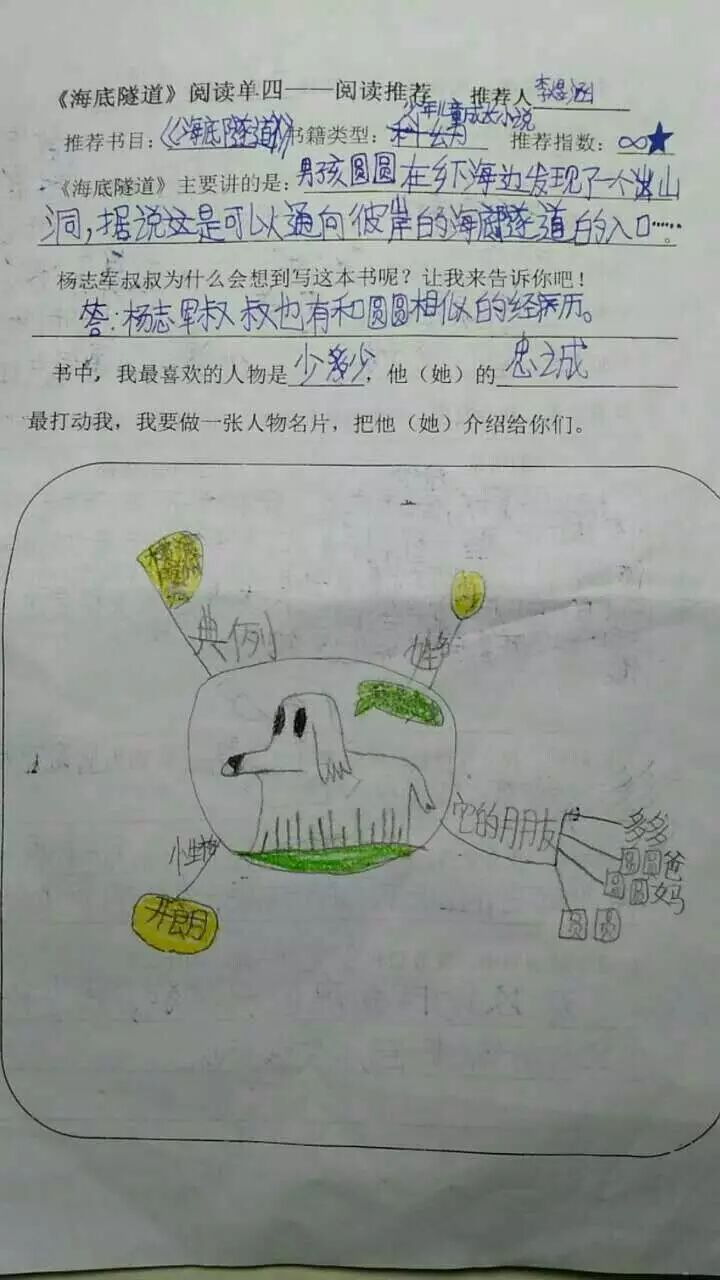 《海底隧道》阅读单四——阅读推荐 推荐人
推荐书目：《海底隧道》书籍类型：少年儿童成长小说 推荐指数：∞★
《海底隧道》主要讲的是：男孩圆圆在乡下海边发现了一个山
洞，据说这是可以通向彼岸的海底隧道的入口……。
杨志军叔叔为什么会想到写这本书呢？让我来告诉你吧！
答：杨志军叔叔也有和圆圆相似的经历。
书中，我最喜欢的人物是少多少，他（她）的忠诚
最打动我，我要做一张人物名片，把他（她）介绍给你们。
典例
姓名
它的朋友
多多
圆圆爸
圆圆妈
圆圆
性格
开朗